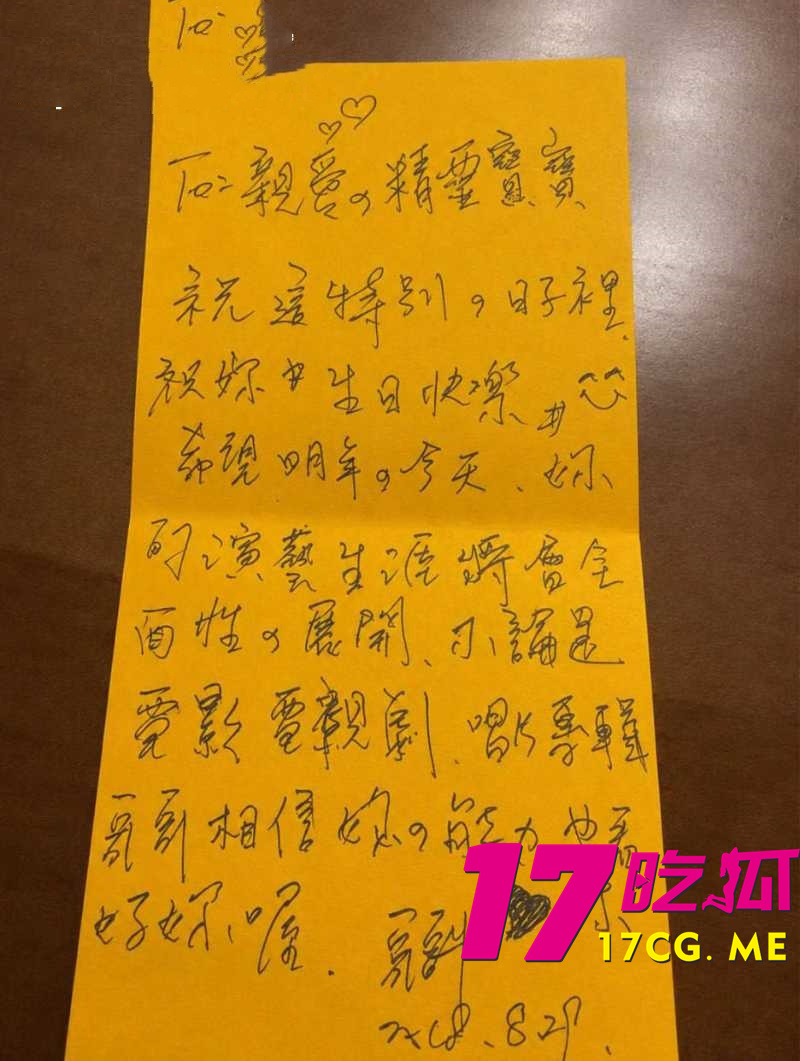 To:
To: 親愛の精靈寶寶
祝這特別の日子裡.
祝妳#生日快樂#
希望明年の今天、妳
的演藝生涯將會全
面性の展開、不論是
電影電視劇、唱片專輯
哥哥相信妳の能力也看
好妳、喔.
哥哥
2018.8.29.
17吃狐
17CG.ME